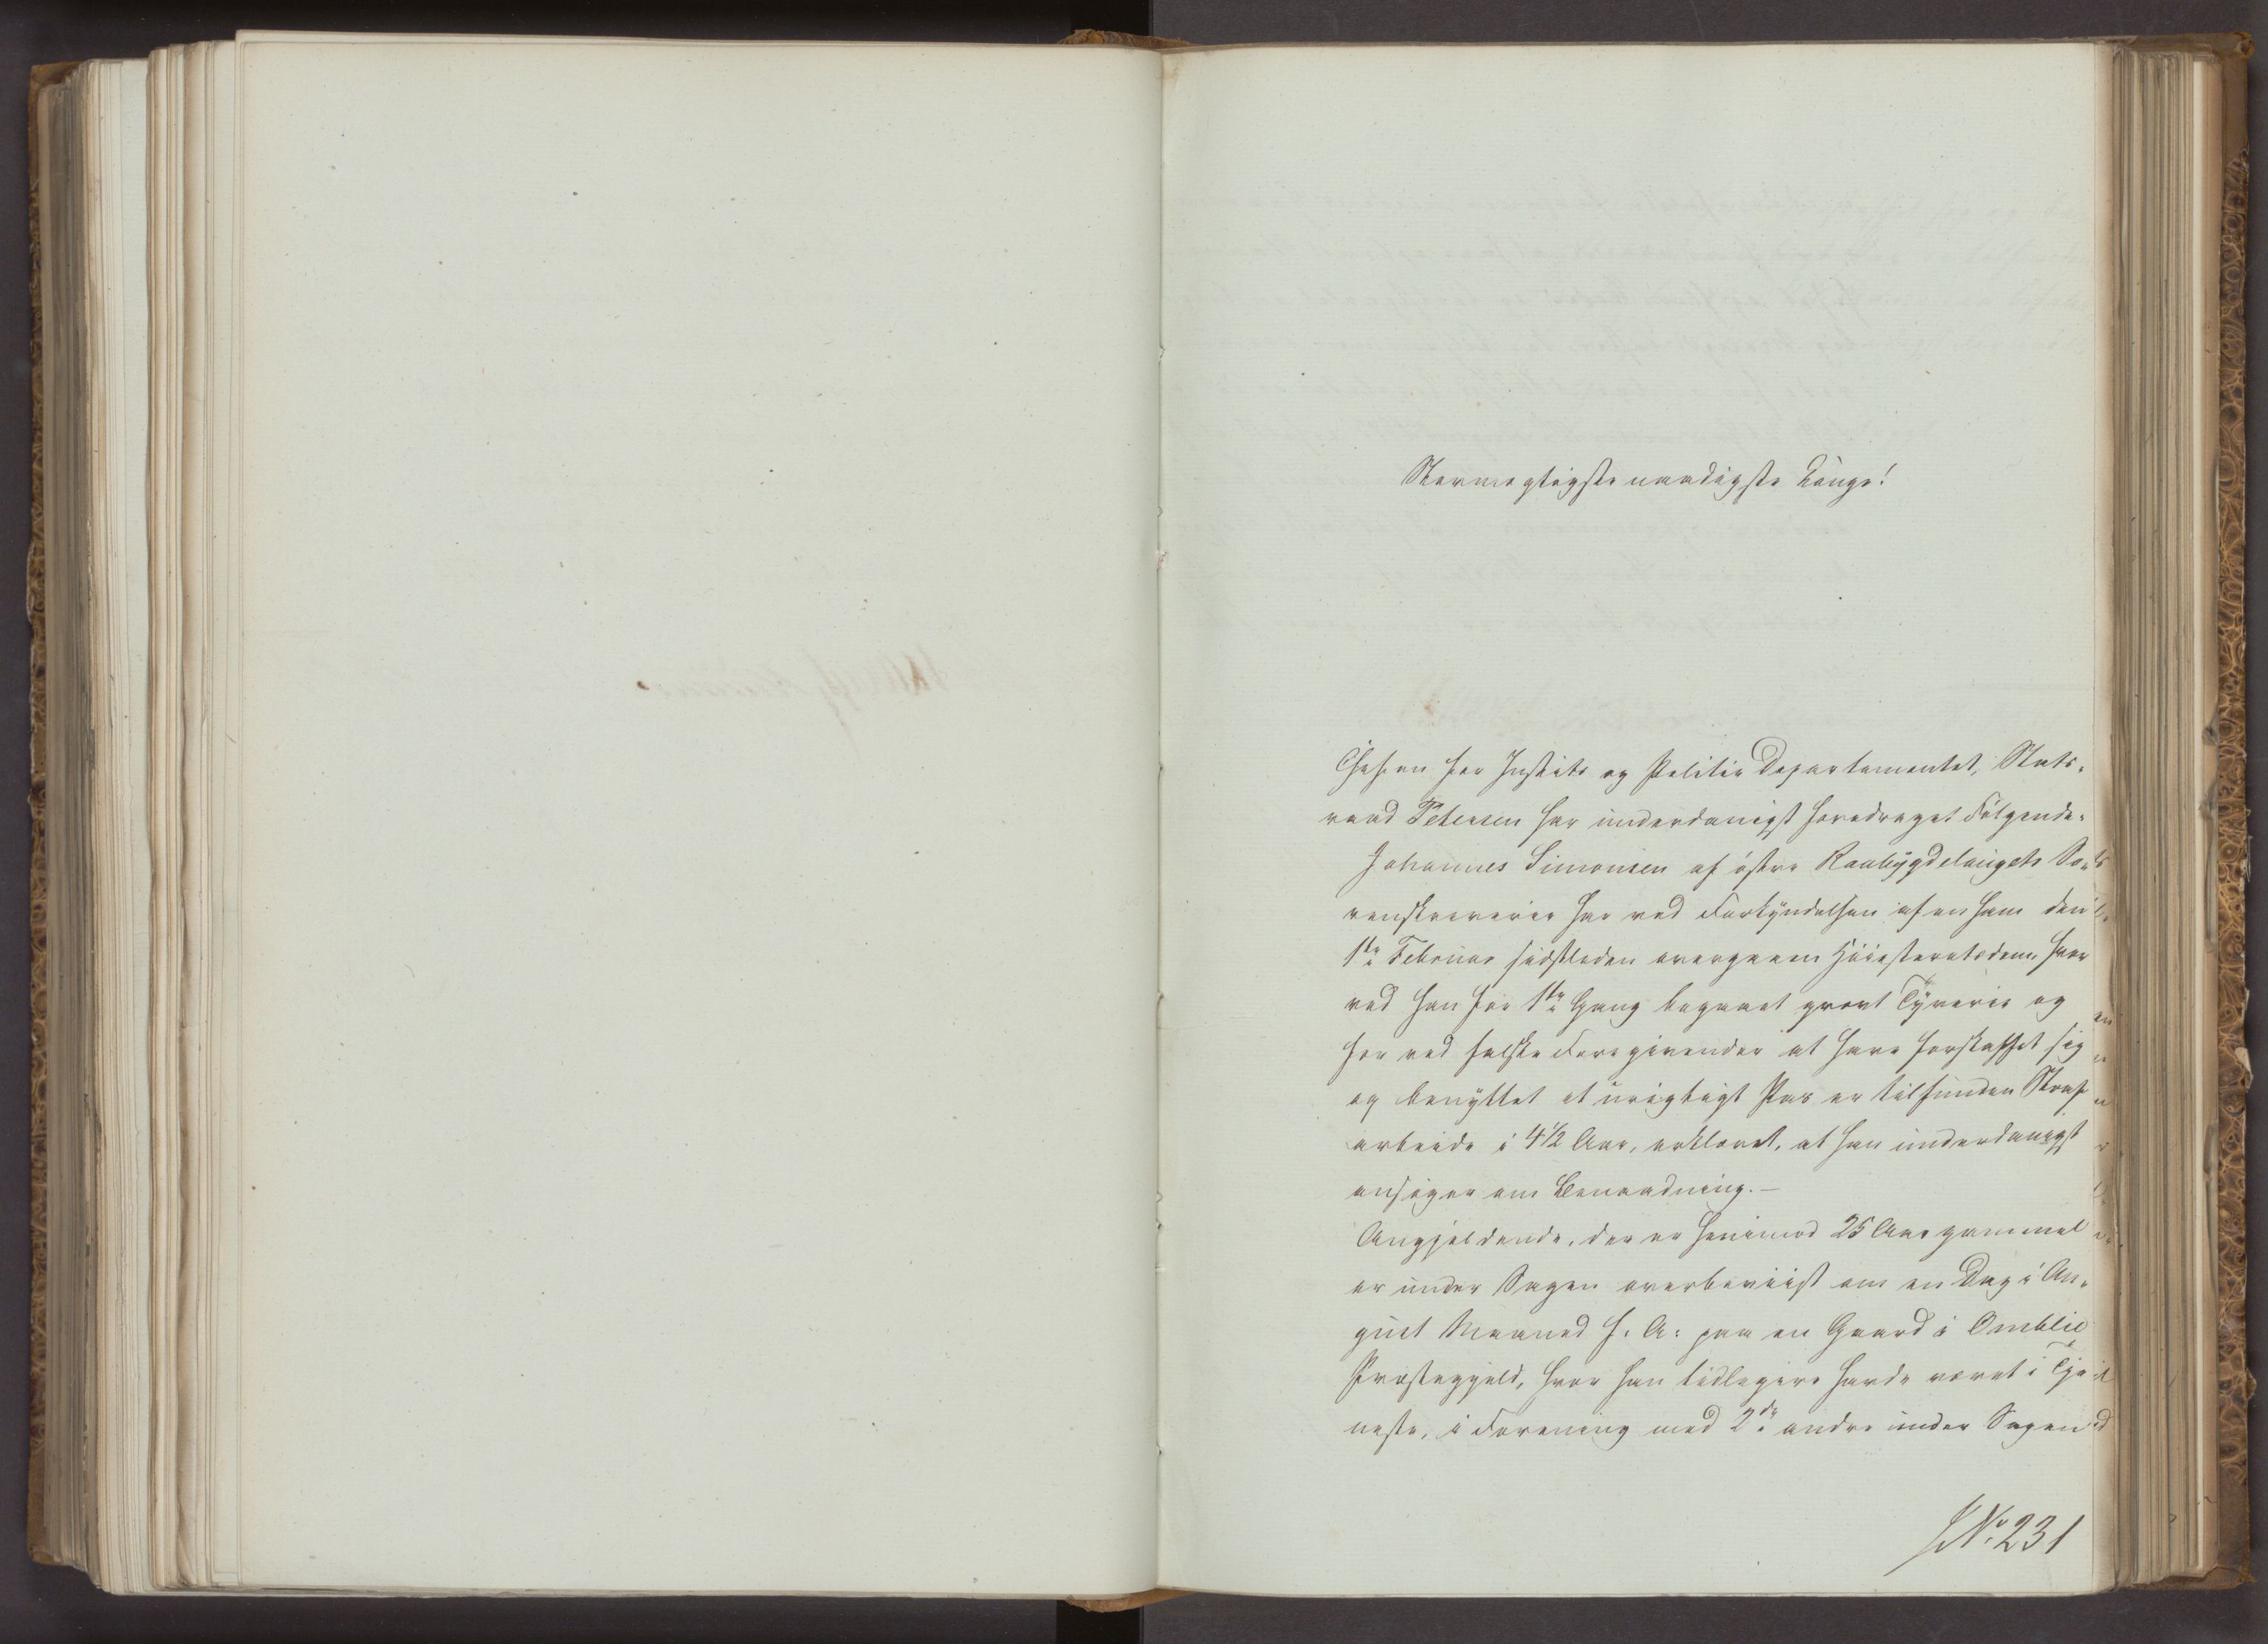 Stormægtigste naadigste Konge!
Chefen for Justits og Politie Departementet, Stats-
raad Petersen har underdanigst foredraget Følgende:
Johannes Simonsen af østre Raabygdelaugets So-
renskriverie har ved Forkyndelsen af en ham den
1ste Februar sidstleden overgaaen Høiesteretsdom, hvor
ved han for 1ste Gang begaaet grovt Tyverie og
for ved falske Foregivender at have forskaffet sig
og benyttet et urigtigt Pas er tilfunden Straf
arbeide i 4½ Aar, erklæret, at han underdanigst
ansøger om Benaadning. —
Angjeldende, der er henimod 25 Aar gammel
er under Sagen overbeviist om en Dag i Au-
gust Maaned f. A: paa en Gaard i Omblie
Præstegjeld, hvor han tidligere havde været i Tje
neste, i Forening med 2de andre under Sagen
J№ 231